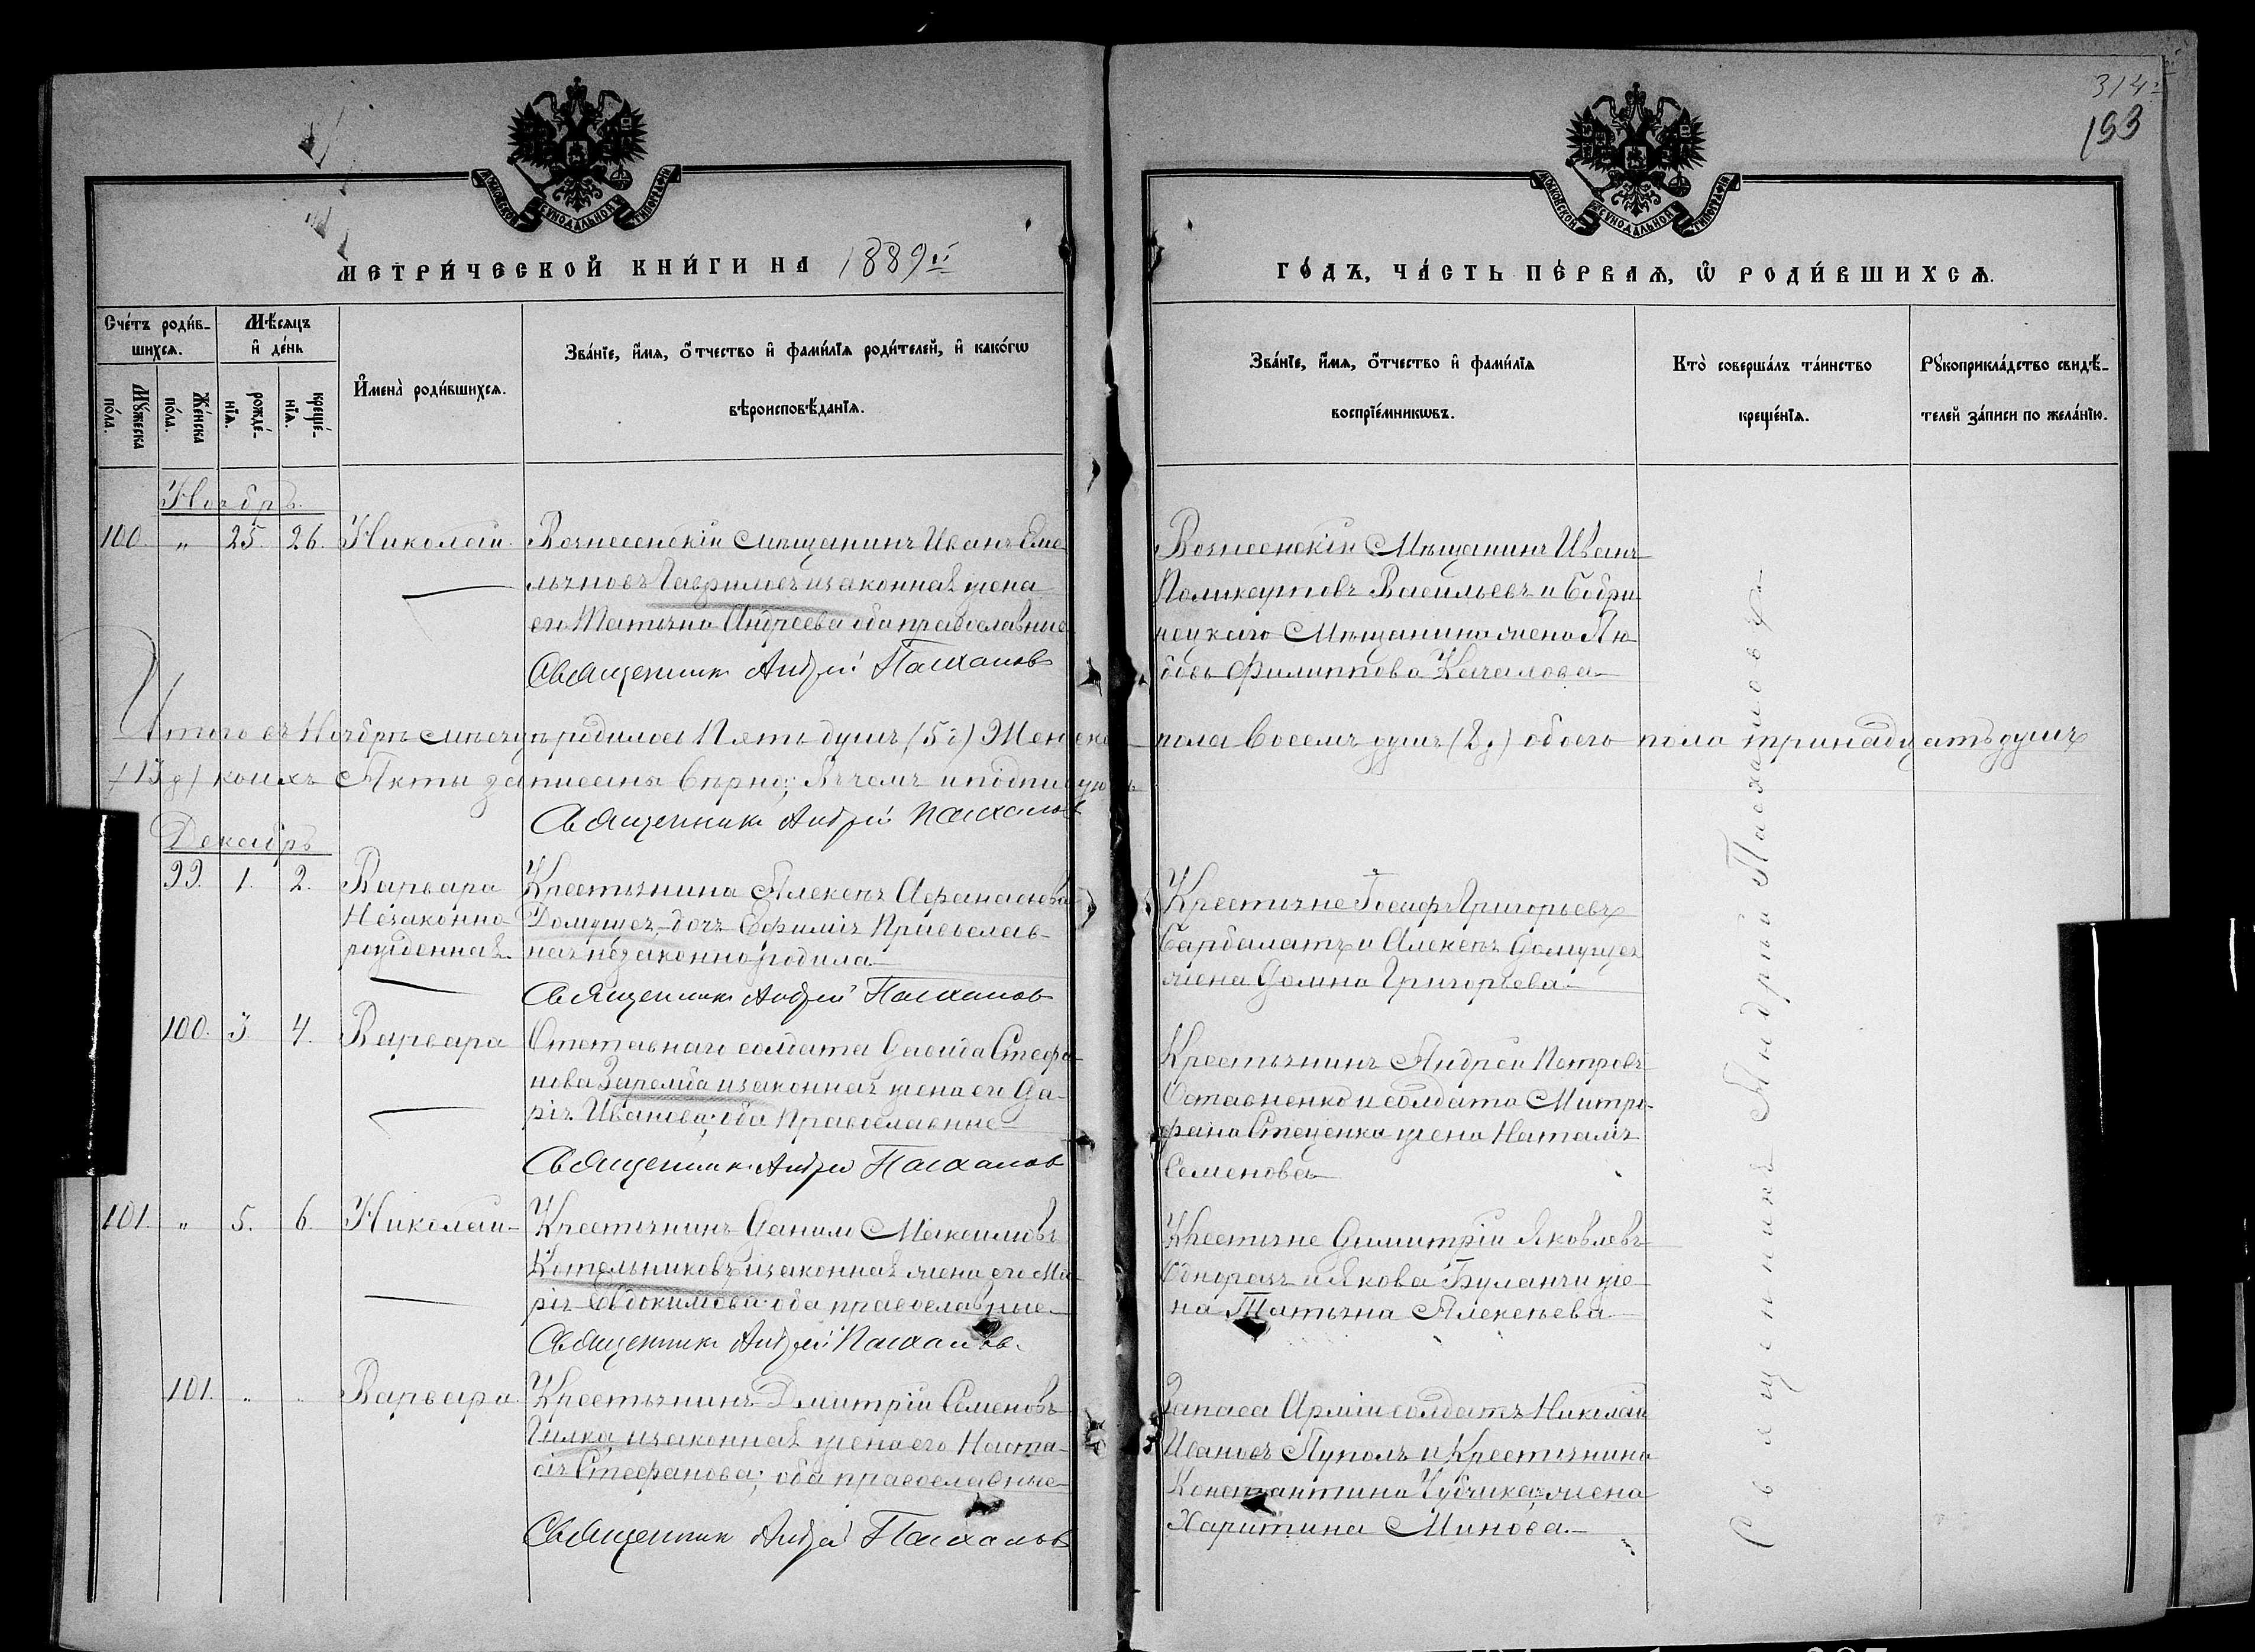 314
193
МОСКОВСКОЙ СѴНОДАЛЬНОЙ ТИПОГРАФІИ
МОСКОВСКОЙ СѴНОДАЛЬНОЙ ТИПОГРАФІИ
МЕТРИ́ЧЕСКОЙ КНИ́ГИ НА 1889й
ГО́ДЪ, ЧА́СТЬ ПЕ́РВАѦ, Ѡ҆ РОДИ́ВШИХСѦ.
Сче́тъ роди́в-
шихсѧ.
Мꙋ́жеска по́ла.
Же́нска по́ла.
Мѣ́сѧцъ
и҆ де́нь
рожде́-нїѧ.
креще́-нїѧ.
И҆мена̀ роди́вшихсѧ.
Зва́нїе, и҆́мѧ, ѻ҆́тчество и҆ фами́лїѧ роди́телей, и҆ како́гѡ
вѣроисповѣ́данїѧ.
Зва́нїе, и҆́мѧ, ѻ҆́тчество и҆ фами́лїѧ
воспрїе́мникѡвъ.
Кто̀ соверша́лъ та́инство
креще́нїѧ.
Рꙋкоприкла́дство свидѣ́-
телей за́писи по жела́нїю.
Ноябрь
100. " 25. 26. Николай. Вознесенскій мѣщанинъ Иванъ Еме-
льяновъ Гавриловъ и законная жена
его Татьяна Андреева оба православные
Священник Андрей Пасхалов
Вознесенскій Мѣщанинъ Иванъ
Поликарповъ Васильевъ и Бобри-
нецкаго Мѣщанина жена Лю-
бовь Филиппова Качалова
Итого въ Ноябрѣ мѣсяцѣ родилось Пять душъ (5 д) Женска пола восемъ душъ (8 д) обоего пола тринадцать душъ
(13 д) коихъ Акты записаны вѣрно; въ чемъ и подписуюсь
Священник Андрей Пасхалов
Декабрь
99. 1. 2. Варвара
Незаконно-
рожденная
Крестьянина Алексѣя Афанасьева
Домущея, дочъ Евфимія Православ-
ная незаконно родила
Священник Андрей Пасхалов
Крестьяне Іосифъ Григорьевъ
Барбалатъ и Алексѣя Домущея
жена Домна Григорьева
100. 3 4. Варвара Отставнаго солдата Давида Стефа-
нова и законная жена его Да-
рія Иванова; оба Православные
Священник Андрей Пасхалов
Крестьянинъ Андрей Петровъ
Остапенко и солдата Митро-
фана Стеценка жена Наталія
Семенова
101. " 5. 6. Николай Крестьянинъ Данилъ Максимовъ
Котельниковъ и законная жена его Ма-
рія Евдокимова оба православные
Священник Андрей Пасхалов
Крестьяне Димитрій Яковлевъ
и Якова Буланчи же-
на Татьяна Алексѣева
101. " " Варвара. Крестьянинъ Дмитрій Семеновъ
Гилка и законная жена его Наста-
сія Стефанова; оба православные
Священник Андрей Пасхалов
Запаса Арміи солдатъ Николай
Ивановъ Луполъ и Крестьянина
Константина Чубчика жена
Харитина Минова.
Священникъ Андрей Пасхаловъ